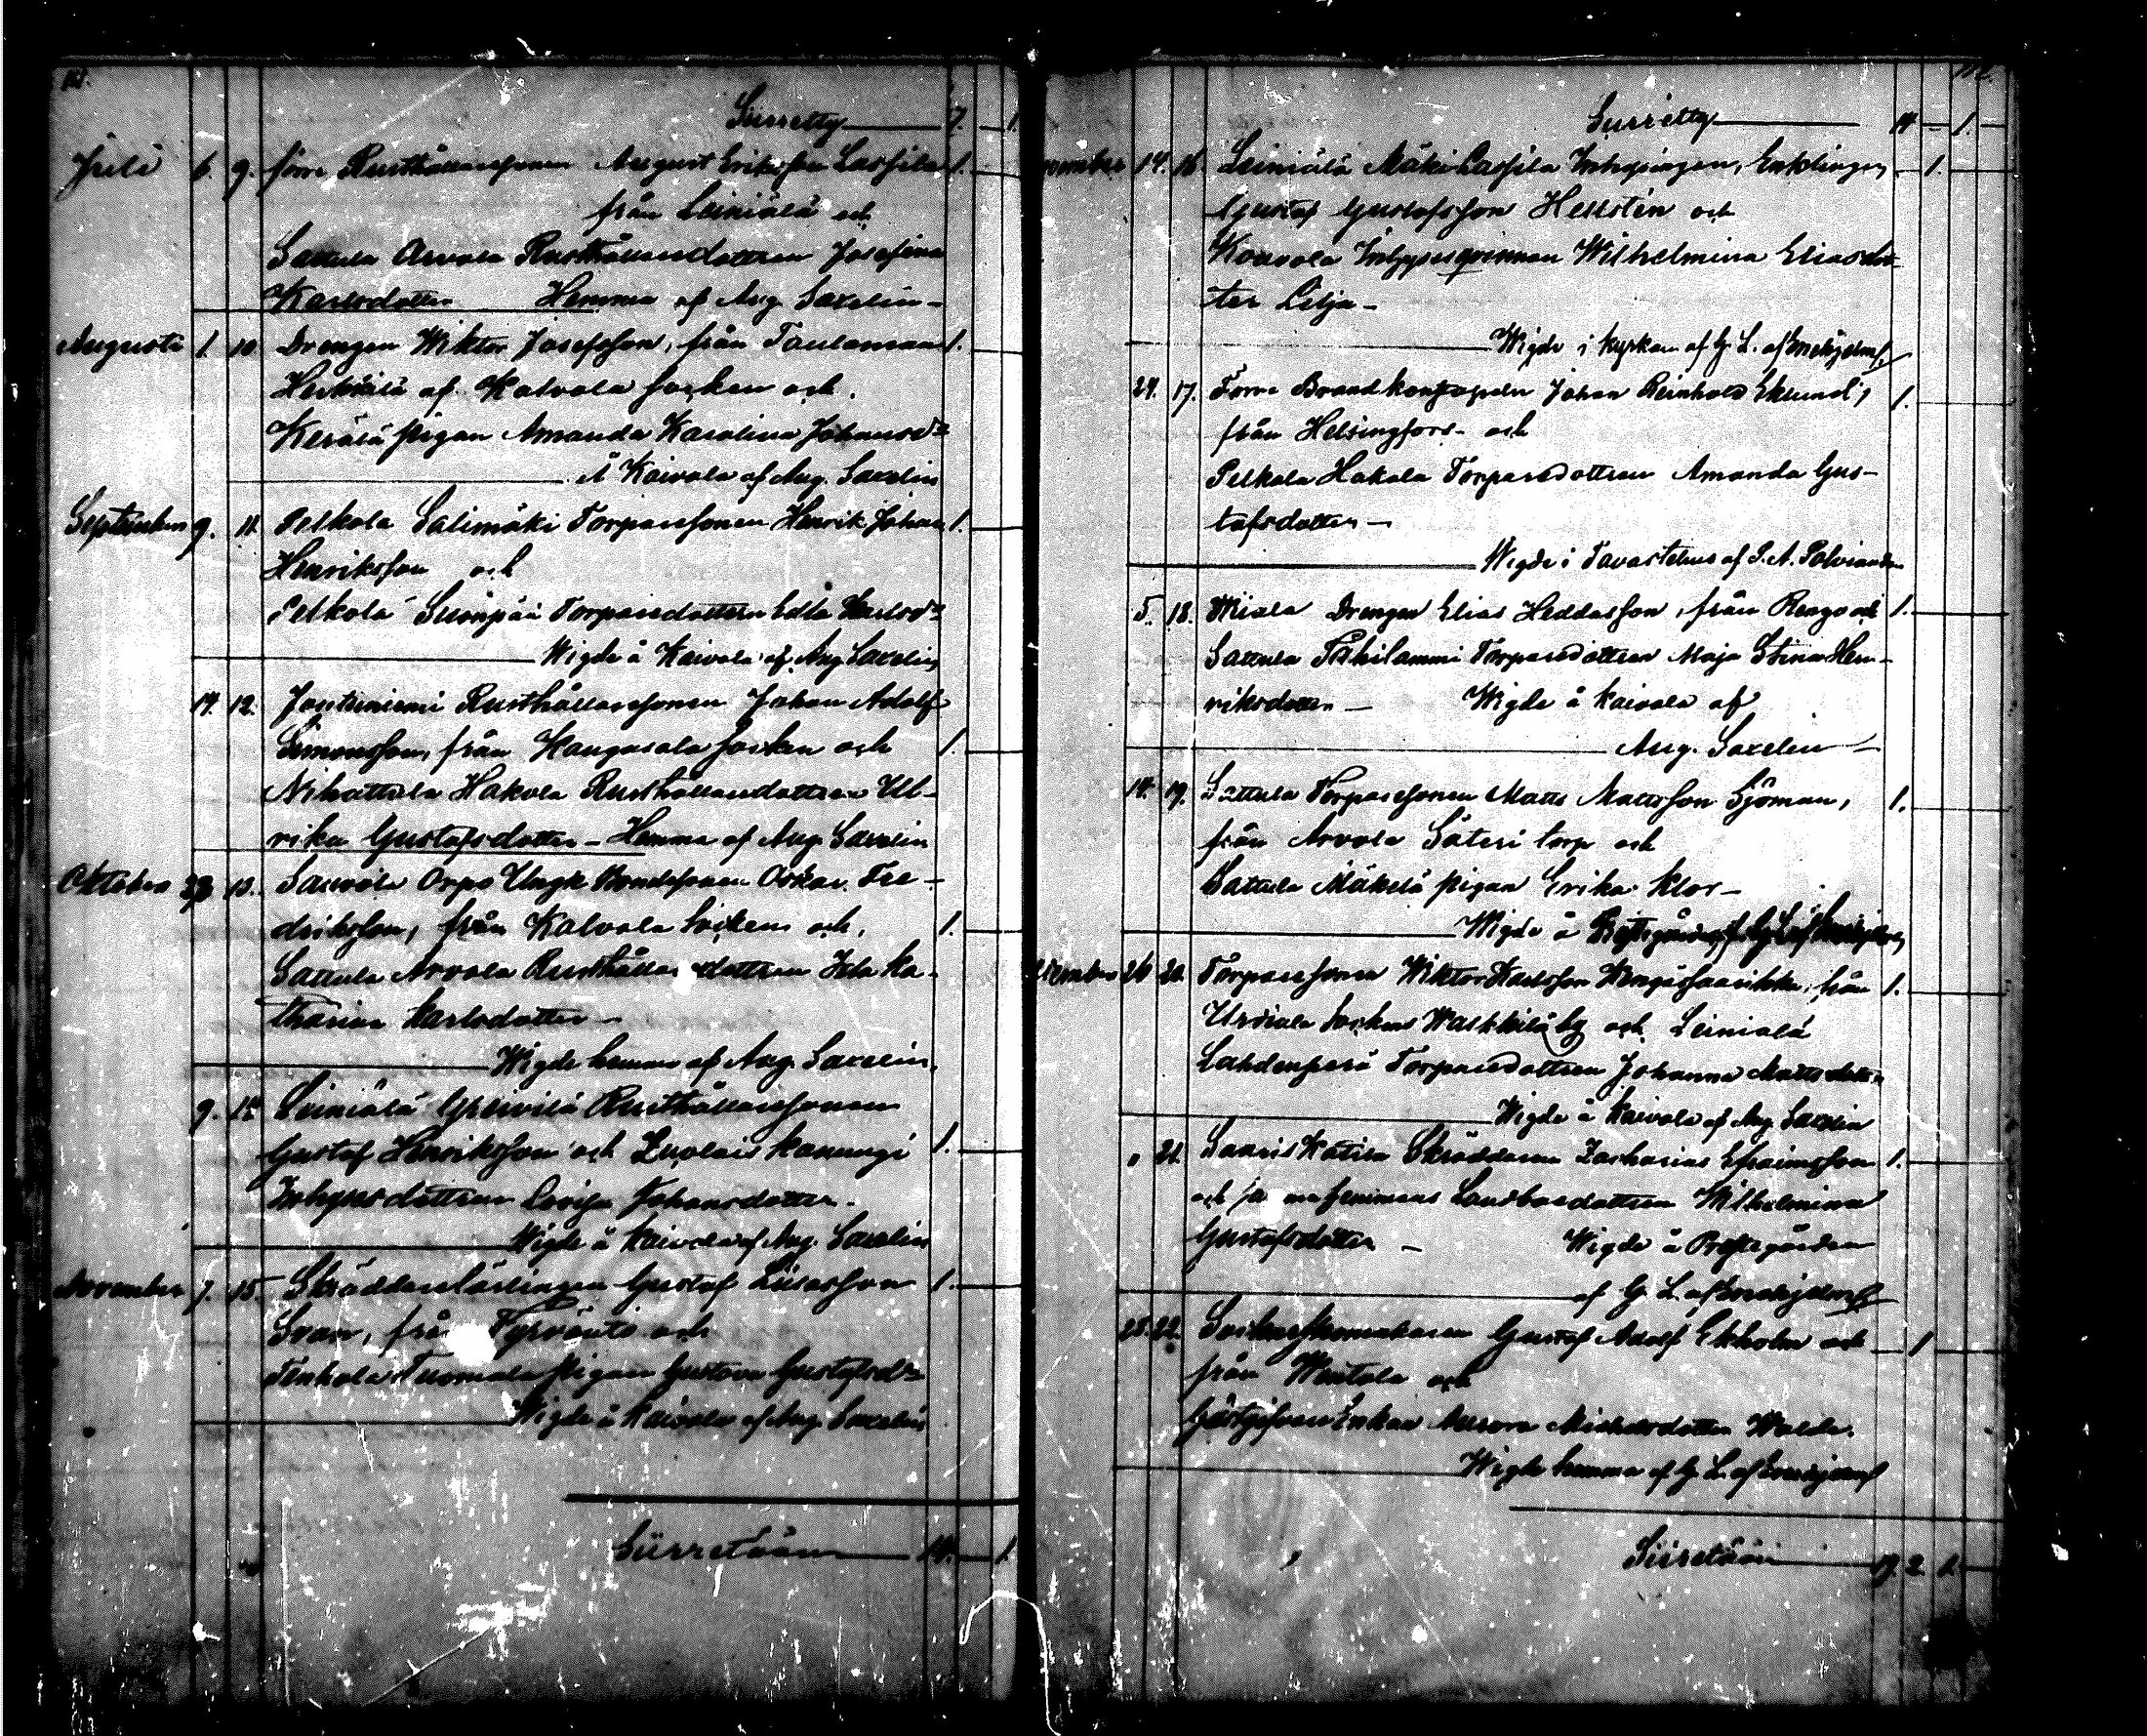 Siirretty 7. 1.
Juli 6. 9. förre Rusthållaresonen August Eriksson Lassila 1.
från Leiniälä och
Sattula Arvola Rusthållaredottren Josefina
Karlsdotter Hemma af Aug. Saxelin
Augusti 1. 10. Drengen Wiktor Josefsson, från 1.
af Kalvola socken och
Kerälä pigan Amanda Karolina Johansdr
Å Kaivola af Aug. Saxelin
September 9. 11. Pelkola Salimäki Torparesonen Henrik Johan 1.
Henriksson och
Pelkola Torparedottren Edla Karlsdr
Wigde å Kaivola af Aug Saxelin
14. 12. Rusthållaresonen Johan Adolf
Simonsson, från Kangasala socken och 1.
Nihattula Hakola Rusthållaredottren Ul-
rika Gustafsdotter - Hemma af Aug. Saxelin
Oktober 13. Orpo Bondesonen Oskar Fre-
driksson, från Kalvola Socken och 1.
Sattula Arvola Rusthållaredottren Ida Ka-
tharina Karlsdotter
Wigde hemma af Aug. Saxelin
9. 14 Leiniälä Yrivilä Rusthållaresonen
Gustaf Henriksson och Luolais Kanungi 1.
Inhysesdottren Lovisa Johansdotter.
Wigde å Kaivola af Aug. Saxelin
November 7. 15. Skräddarelärlingen Gustaf 1.
Svan, från Tyrväntö och
Tenhola Tuomala Pigan Gustava Gustafsdr
Wigde å Kaivola af Aug. Saxelin
Siirretään 14. 1.
Siirretty 14 - 1.
November 14. 16 Leiniälä Mäki Lassila Inhysingen, Enklingen 1.
Gustaf Gustafsson Hellstén och
Kouvola Inhysesqvinnan Wilhelmina Eliasdot-
ter Lilja -
Wigde i kyrkan af G. L. af
24. 17. Förre Johan Reinhold Eklund, 1.
från Helsingfors och
Pelkola Hakala Torparedottren Amanda Gus-
tafsdotter -
Wigde i Tavastehus af
5. 18. Drengen Elias Heddasson, från Rengo och 1.
Sattula Pahilammi Torparedottren Maja Stina Hen-
riksdotter - Wigde å Kaivola af
Aug. Saxelin
14. 19. Sattula Torparesonen Matts Mattsson Sjöman, 1.
från Arvola Säteri torp och
Sattula Mäkelä pigan Erika Klor -
Wigde å Prestgården af G. L. af
December 26 20. Torparesonen Wiktor Karlsson från 1.
Urdiala Sockens by och Leiniälä
Lahdenperä Torparedottren Johanna Mattsdotter
Wigde å Kaivola af Aug. Saxelin
" 21. Saaris Katisa Skräddaren Zacharias Efraimsson 1.
och Landboedottren Wilhelmina
Gustafsdotter - Wigde å Prestgården
af G. L. af
28. 22. Sockneskomakaren Gustaf Adolf Ekholm och 1
från och
Gästgifvare Enkan Aurora Michelsdotter
Wigde hemma af G. L. af
Siirretään 19. 2. 1.